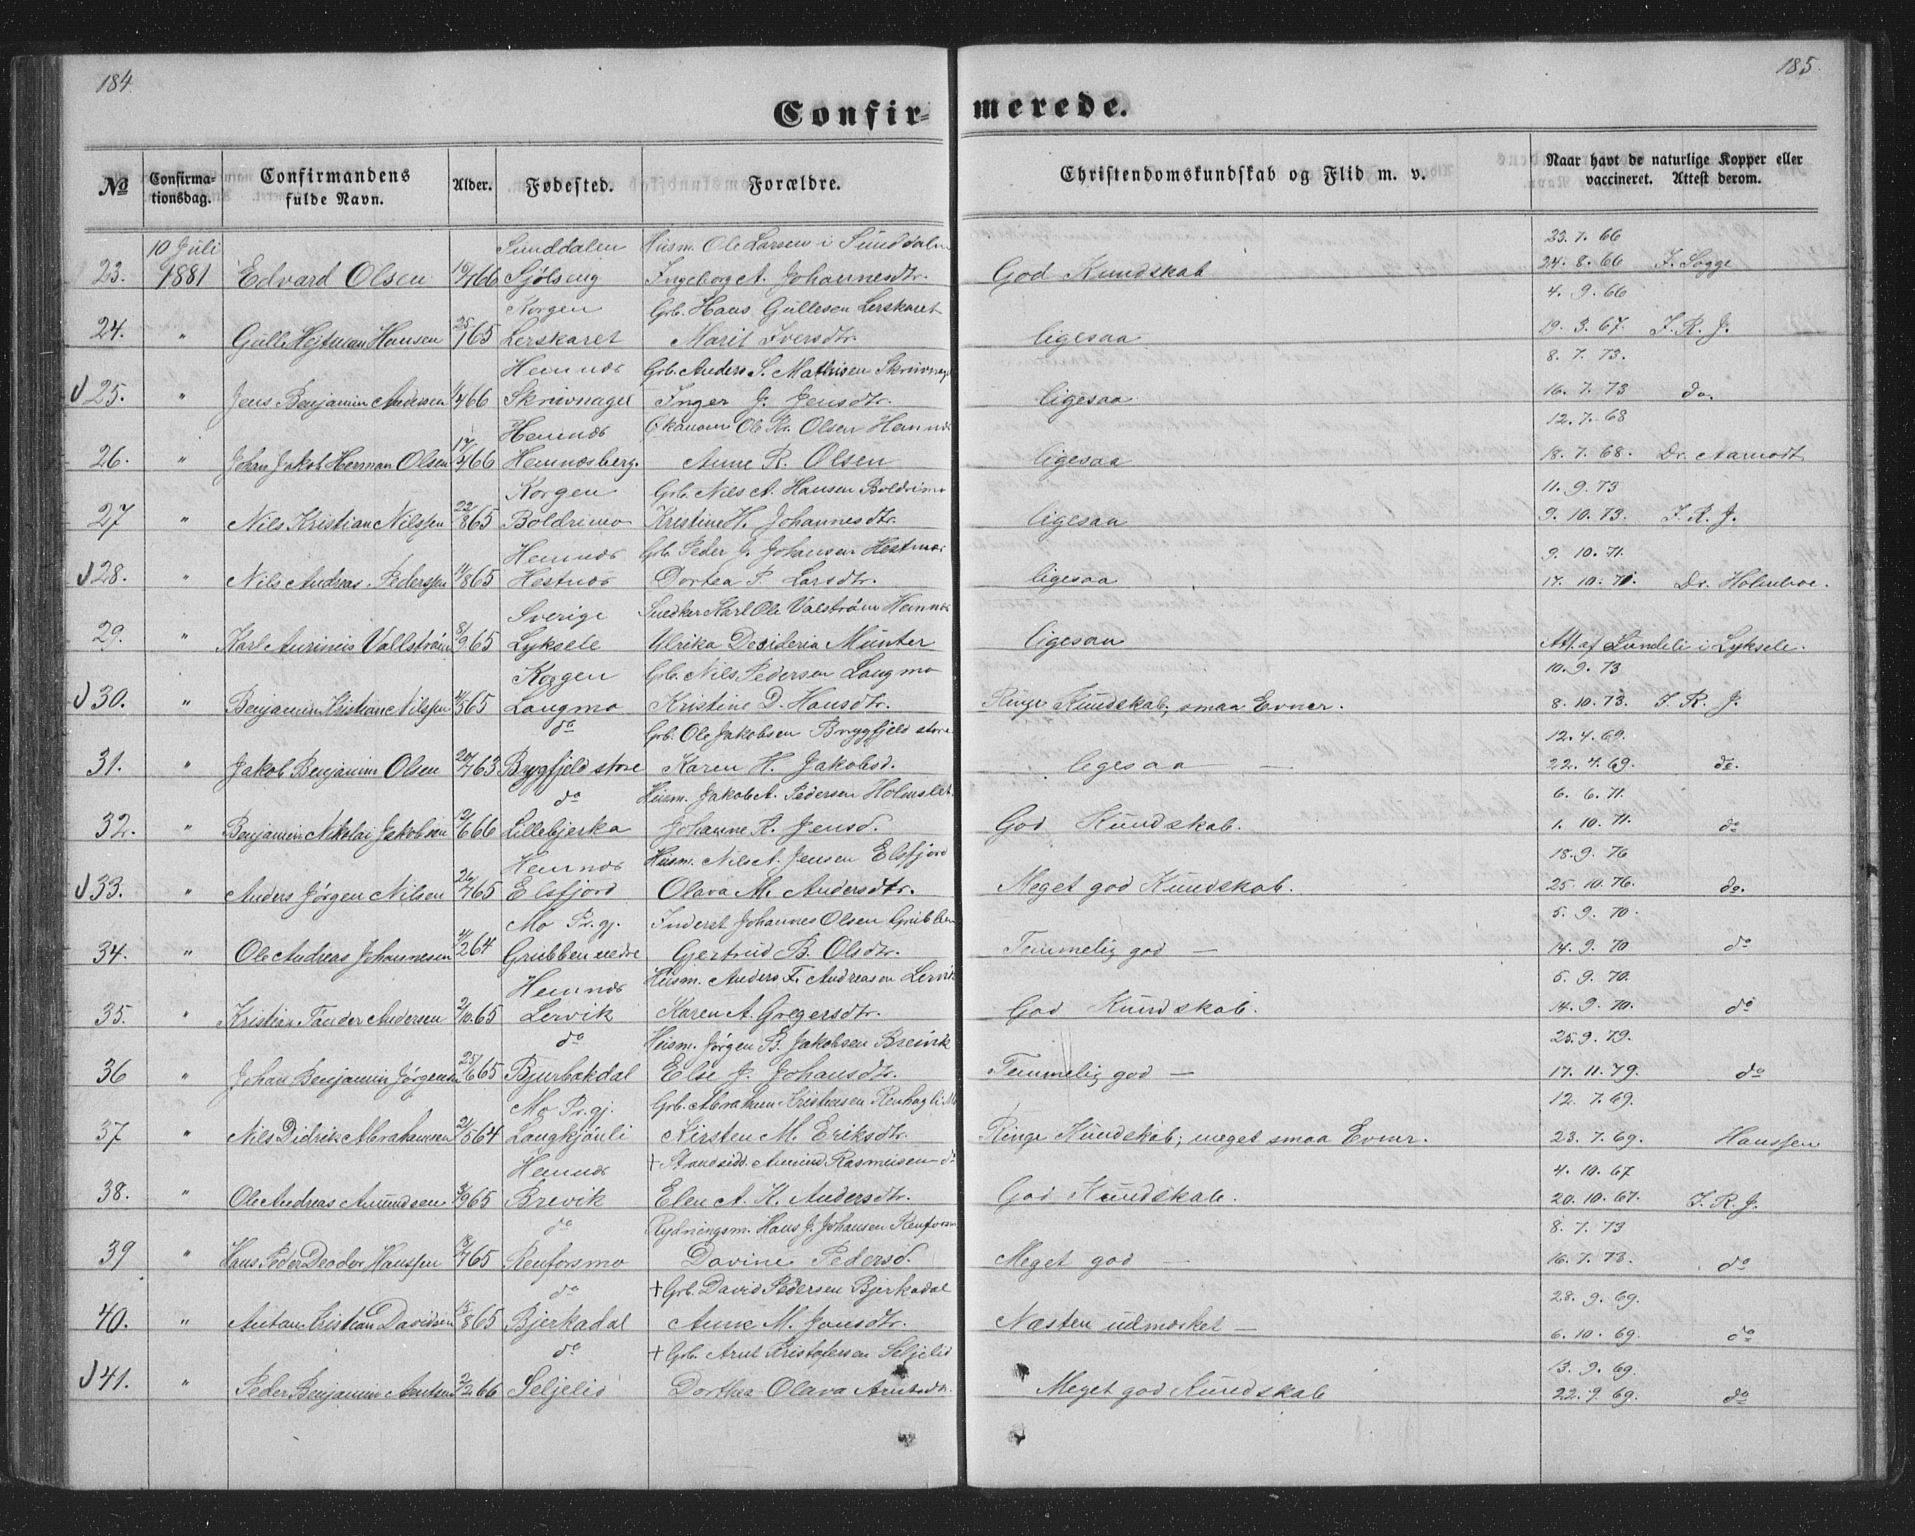 184.
185.
Confir-
merede.
No
Confirma-
tionsdag.
Confirmandens
fulde Navn.
Alder.
Fødested.
Forældre.
Christendomskundskab og Flid m. v.
Naar havt de naturlige Kopper eller
vaccineret. Attest derom.
10 Juli Sunddalen Husm. Ole Larsen i Sunddalen 23. 7. 66
23. 1881 Edvard Olsen 19/466 Sjølseng Ingeborg A. Johannesdtr. God Kundskab 24. 8. 66 J. Sogge
Korgen Grb. Hans Gullesen Lerskaret 4. 9. 66
24. " Gulle Hejtman Hansen 25/165 Lerskaret Marit Iversdtr. ligesaa 19. 3. 67. J. R. J.
Hemnæs Grb. Anders S. Mathisen Skrivnagel 8. 7. 73.
25. " Jens Benjamin Andersen 466 Skrivnagel Inger J. Jensdtr. ligesaa 16. 7. 73 do.
Hemnæs Økonom Ole Kr. Olsen Hemnæs 12. 7. 68
26. " Johan Jakob Herman Olsen 17/466 Hemnæsberg. Anne R. Olsen ligesaa 18. 7. 68. Dr. Aamodt
Korgen Grb. Nils A. Hansen Boldrimo 11. 9. 73
27 " Nils Kristian Nilssen 22/865 Boldrimo Kristine H. Johannesdtr. ligesaa 9. 10. 73. J. R. J.
Hemnæs Grb. Peder J. Johansen Hestnæs 9. 10. 71.
28. " Nils Andreas Pederssen 865 Hestnæs Dortea P. Larsdtr. ligesaa 17. 10. 71. Dr. Holmboe.
Sverige Snedker Karl Ole Valstrøm Hemnæs
29. " Karl Vallstrøm 8/965 Lyksele Ulrika Desideria Münter ligesaa Att. af Lundeli i Lyksele.
Korgen Grb. Nils Pedersen Langmo 10. 9. 73
30. " Benjamin Kristian Nilssen 565 Langmo Kristine D. Hansdtr. Ringe Kundskab, smaa Evner. 8. 10. 73. J. R. J.
do Grb. Ole Jakobsen Brygfjeld store 12. 4. 69.
31. " Jakob Benjamin Olsen 20/763 Brygfjeld store Karen H. Jakobsd. ligesaa — 22. 4. 69. do.
do Husm. Jakob A. Pedersen Holmslet 6. 6. 71.
32. " Benjamin Nikolai Jakobsen 2/666 Lillebjerka Johanne K. Jensd. God Kundskab. 1. 10. 71. do
Hemnæs Husm. Nils A. Jensen Elsfjord 18. 9. 76
33. " Anders Jørgen Nilsen 26/765 Elsfjord Olava M. Andersdtr. Meget god Kundskab. 25. 10. 76. do.
Mo Pr.gj. Inderst Johannes Olsen Grubben 5. 9. 70.
34. " Ole Andreas Johannesen 264 Grubben nedre Gjertrud B. Olsdtr. Temmelig god — 14. 9. 70 do
Hemnæs Husm. Anders F. Andreasen Lervik 5. 9. 70.
35. " Kristian Tander Andersen 2/10.65 Lervik Karen A. Gregersdtr. God Kundskab. 14. 9. 70. do
do Husm. Jørgen B. Jakobsen Breivik 25. 9. 79.
36 " Johan Benjamin Jørgensen 25/665 Bjurbækdal Else J. Johansdtr. Temmelig god — 17. 11. 79. do
Mo Pr.gj. Grb. Abraham Kristensen Renhagli Mo 12. 7. 69.
37 " Nils Didrik Abrahamsen 21/564 Langkjønli Kirsten M. Eriksdtr. Ringe Kundskab; meget smaa Evner. 23. 7. 69. Hanssen
Hemnæs + Strandsidd. Amund Rasmusen do 4. 10. 67
38. " Ole Andreas Amundsen 965 Brevik Elen A. K. Andersdtr. God Kundskab. 20. 10. 67. J. R. J.
do Rydningsm. Hans J. Johansen Renforsmo 8. 7. 73
39 " Hans Peder Deodor Hanssen 18/765 Renforsmo Davine Pedersd. Meget god — 16. 7. 73. do
do + Grb. David Pedersen Bjerkadal 28. 9. 69.
40. " Antan Kristian Davidsen 13/865 Bjerkadal Anne M. Jonsdtr. Næsten udmærket — 6. 10. 69. do
do + Grb. Arnt Kristofersen Seljelid 13. 9. 69.
41. " Peder Benjamin Arntsen 2/266 Seljelid Dorthea Olava Arntsdtr. Meget god Kundskab 22. 9. 69. do